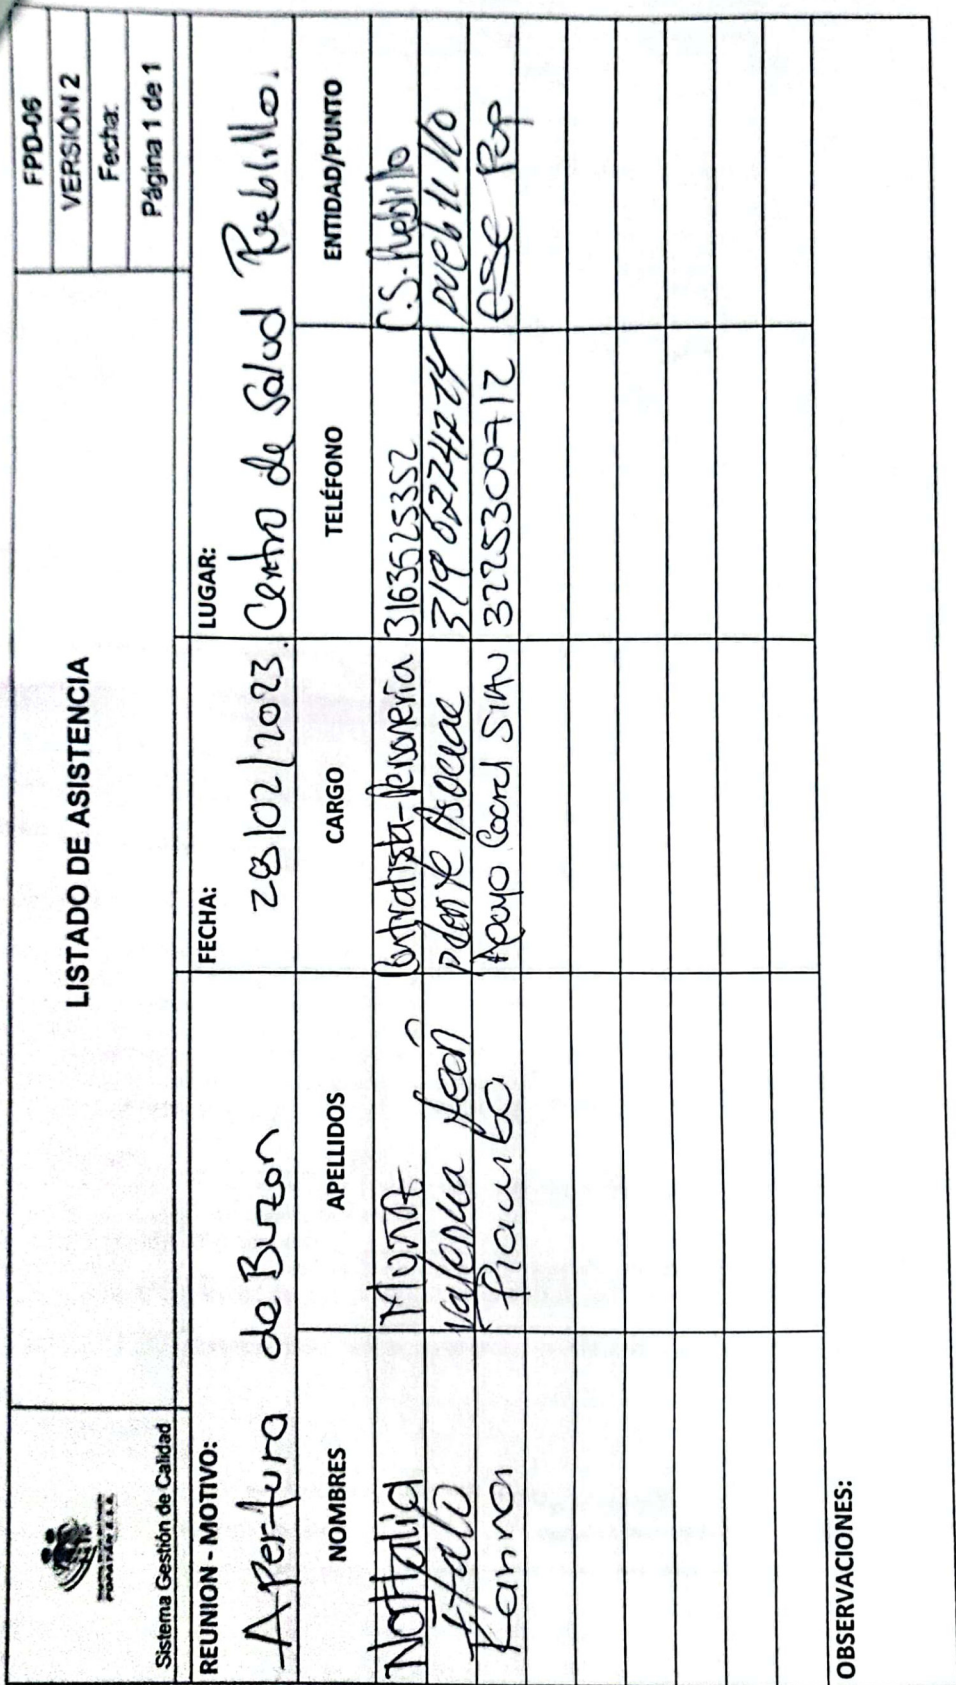 Sistema Gestión de Calidad
LISTADO DE ASISTENCIA
FPD-06
VERSIÓN 2
Fecha:
Página 1 de 1
REUNION - MOTIVO:
Apertura de Buzon
FECHA:
28/02/2023.
LUGAR:
Centro de Salud Pueblillo.
NOMBRES APELLIDOS CARGO TELÉFONO ENTIDAD/PUNTO
Nathalia Muñoz Contratista-Personería 3163525352 C.S. Pueblillo
Italo Valencia Pueblillo
Karina Piamba Apoyo SIAU 3225300712 ESE Pop
OBSERVACIONES: